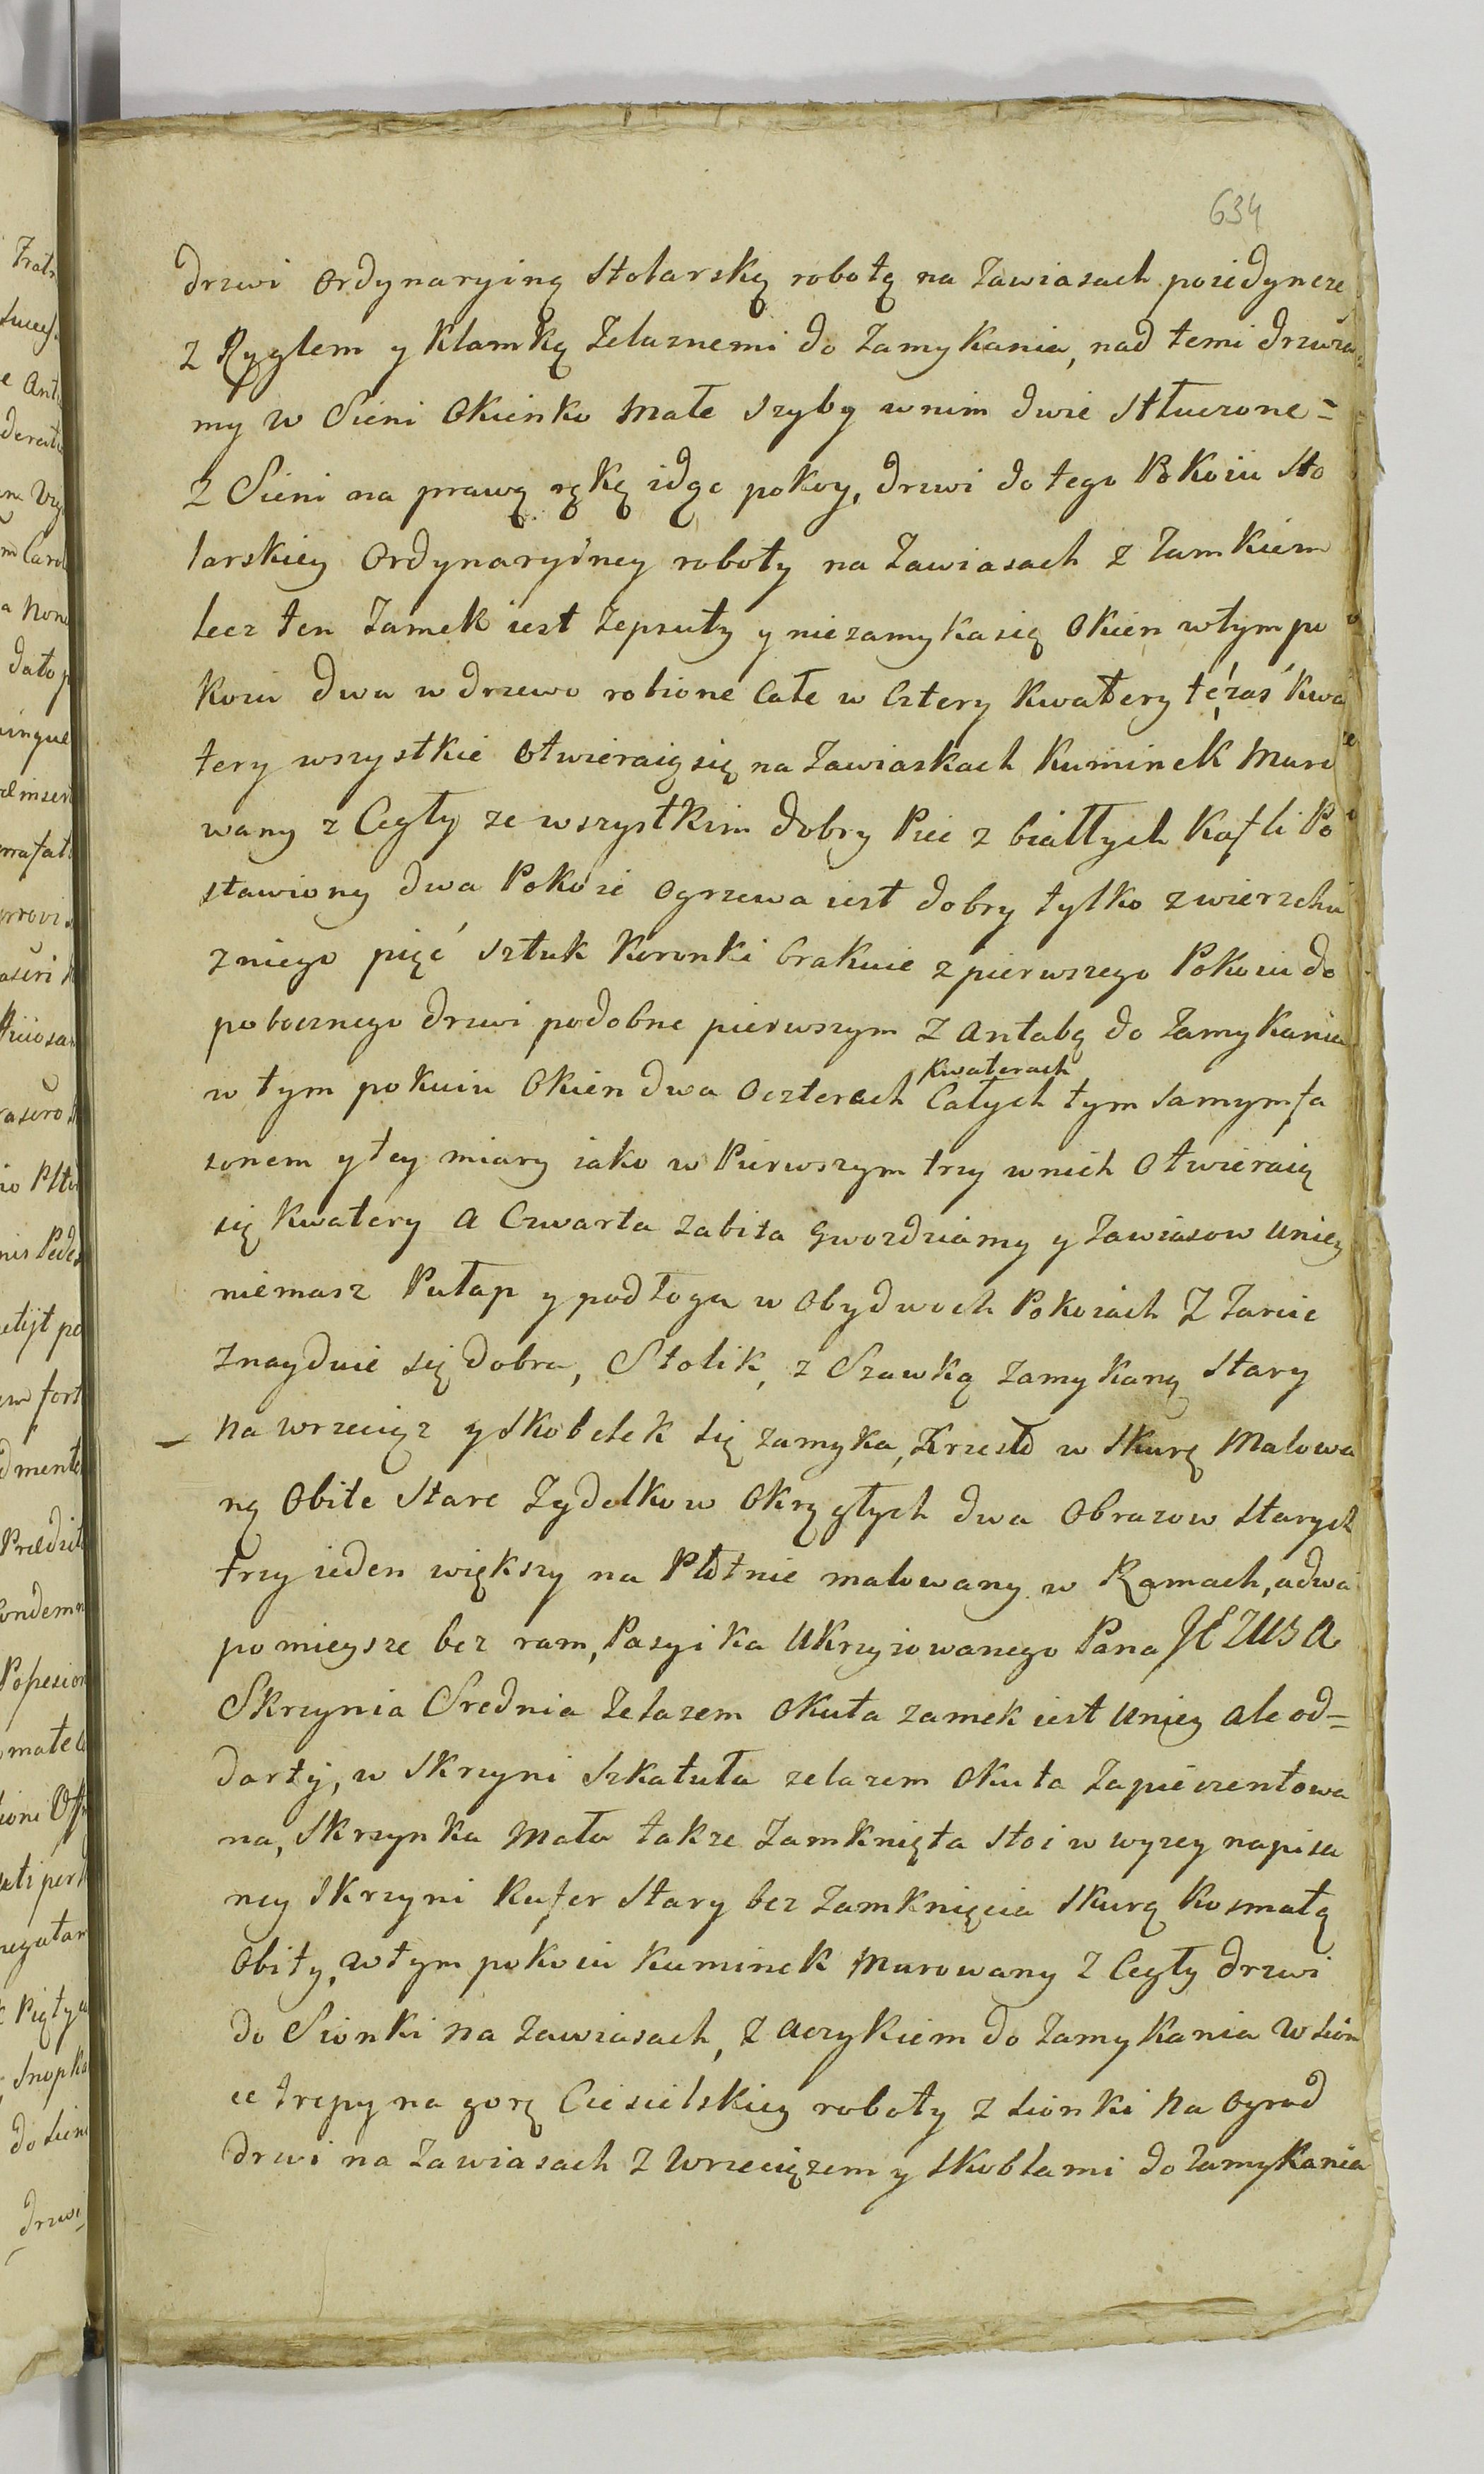 634
drzwi ordynaryiną Stolarską robotą na Zawiasach poiedyncze
z Ryglem y Klamką Żelaznemi do Zamykania, nad temi drzwia
my w Sieni Okienko Małe Szyby wnim dwie Stłuczone =
z Sieni na prawą rękę idąc pokoy, drzwi do tego Pokoiu Sto
larskiey Ordynaryiney roboty na Zawiasach z Zamkiem
lecz ten Zamek iest Zepsuty y niezamyka się Okien wtym po
koiu dwa w drzewo robione Całe w Cztery Kwatery te zaś Kwa
tery wszystkie Otwieraią się na Zawiaskach Kuminek Muro
wany z Cegły ze wszystkim dobry Piec z białłych Kafli Po
stawiony dwa Pokoie Ogrzewa iest dobry tylko zwierzchu
zniego pięć sztuk Koronki brakuie zpierwszego Pokoiu do
pobocznego drzwi podobne pierwszym Z Antabą do Zamykania
Kwaterach
w tym pokuiu Okien dwa Oczterach Całych tym samym fa
sonem y tey miary iako w Pierwszym trzy wnich Otwieraią
się Kwatery a Czwarta Zabita Gwozdziamy y Zawiasow Uniey
niemasz Pułap y podłoga w Obydwoch Pokoiach Z Tarcic
Znayduie się dobra, Stolik, z Szawką Zamykaną Stary
na wrzeciąz y Skobelek się zamyka, Krzesło w Skurę Malowa
ną Obite Stare Zydelkow Okrągłych dwa Obrazow Starych
trzy ieden większy na Płótnie malowany w Ramach, a dwa
pomieysze bez ram, Pasyika Ukrzyżowanego Pana JEZUSA
Skrzynia Srednia Żelazem Okuta zamek iest Uniey ale od=
darty, w Skrzyni Szkatuła zelazem Okuta Zapieczentowa
na, Skrzynka Mała także Zamknięta stoi w wyzey napisa
ney Skrzyni Kufer Stary bez Zamknięcia Skurą Kosmatą
Obity, wtym pokoiu Kuminek Murowany Z Cegły drzwi
do Sionki na Zawiasach, z aczykiem do Zamykania w sion
ce trepy na gorę Ciesielskiey roboty z sionki na Ogrod
drwi na Zawiasach Z Wrzeciązem y Skoblami do Zamykania